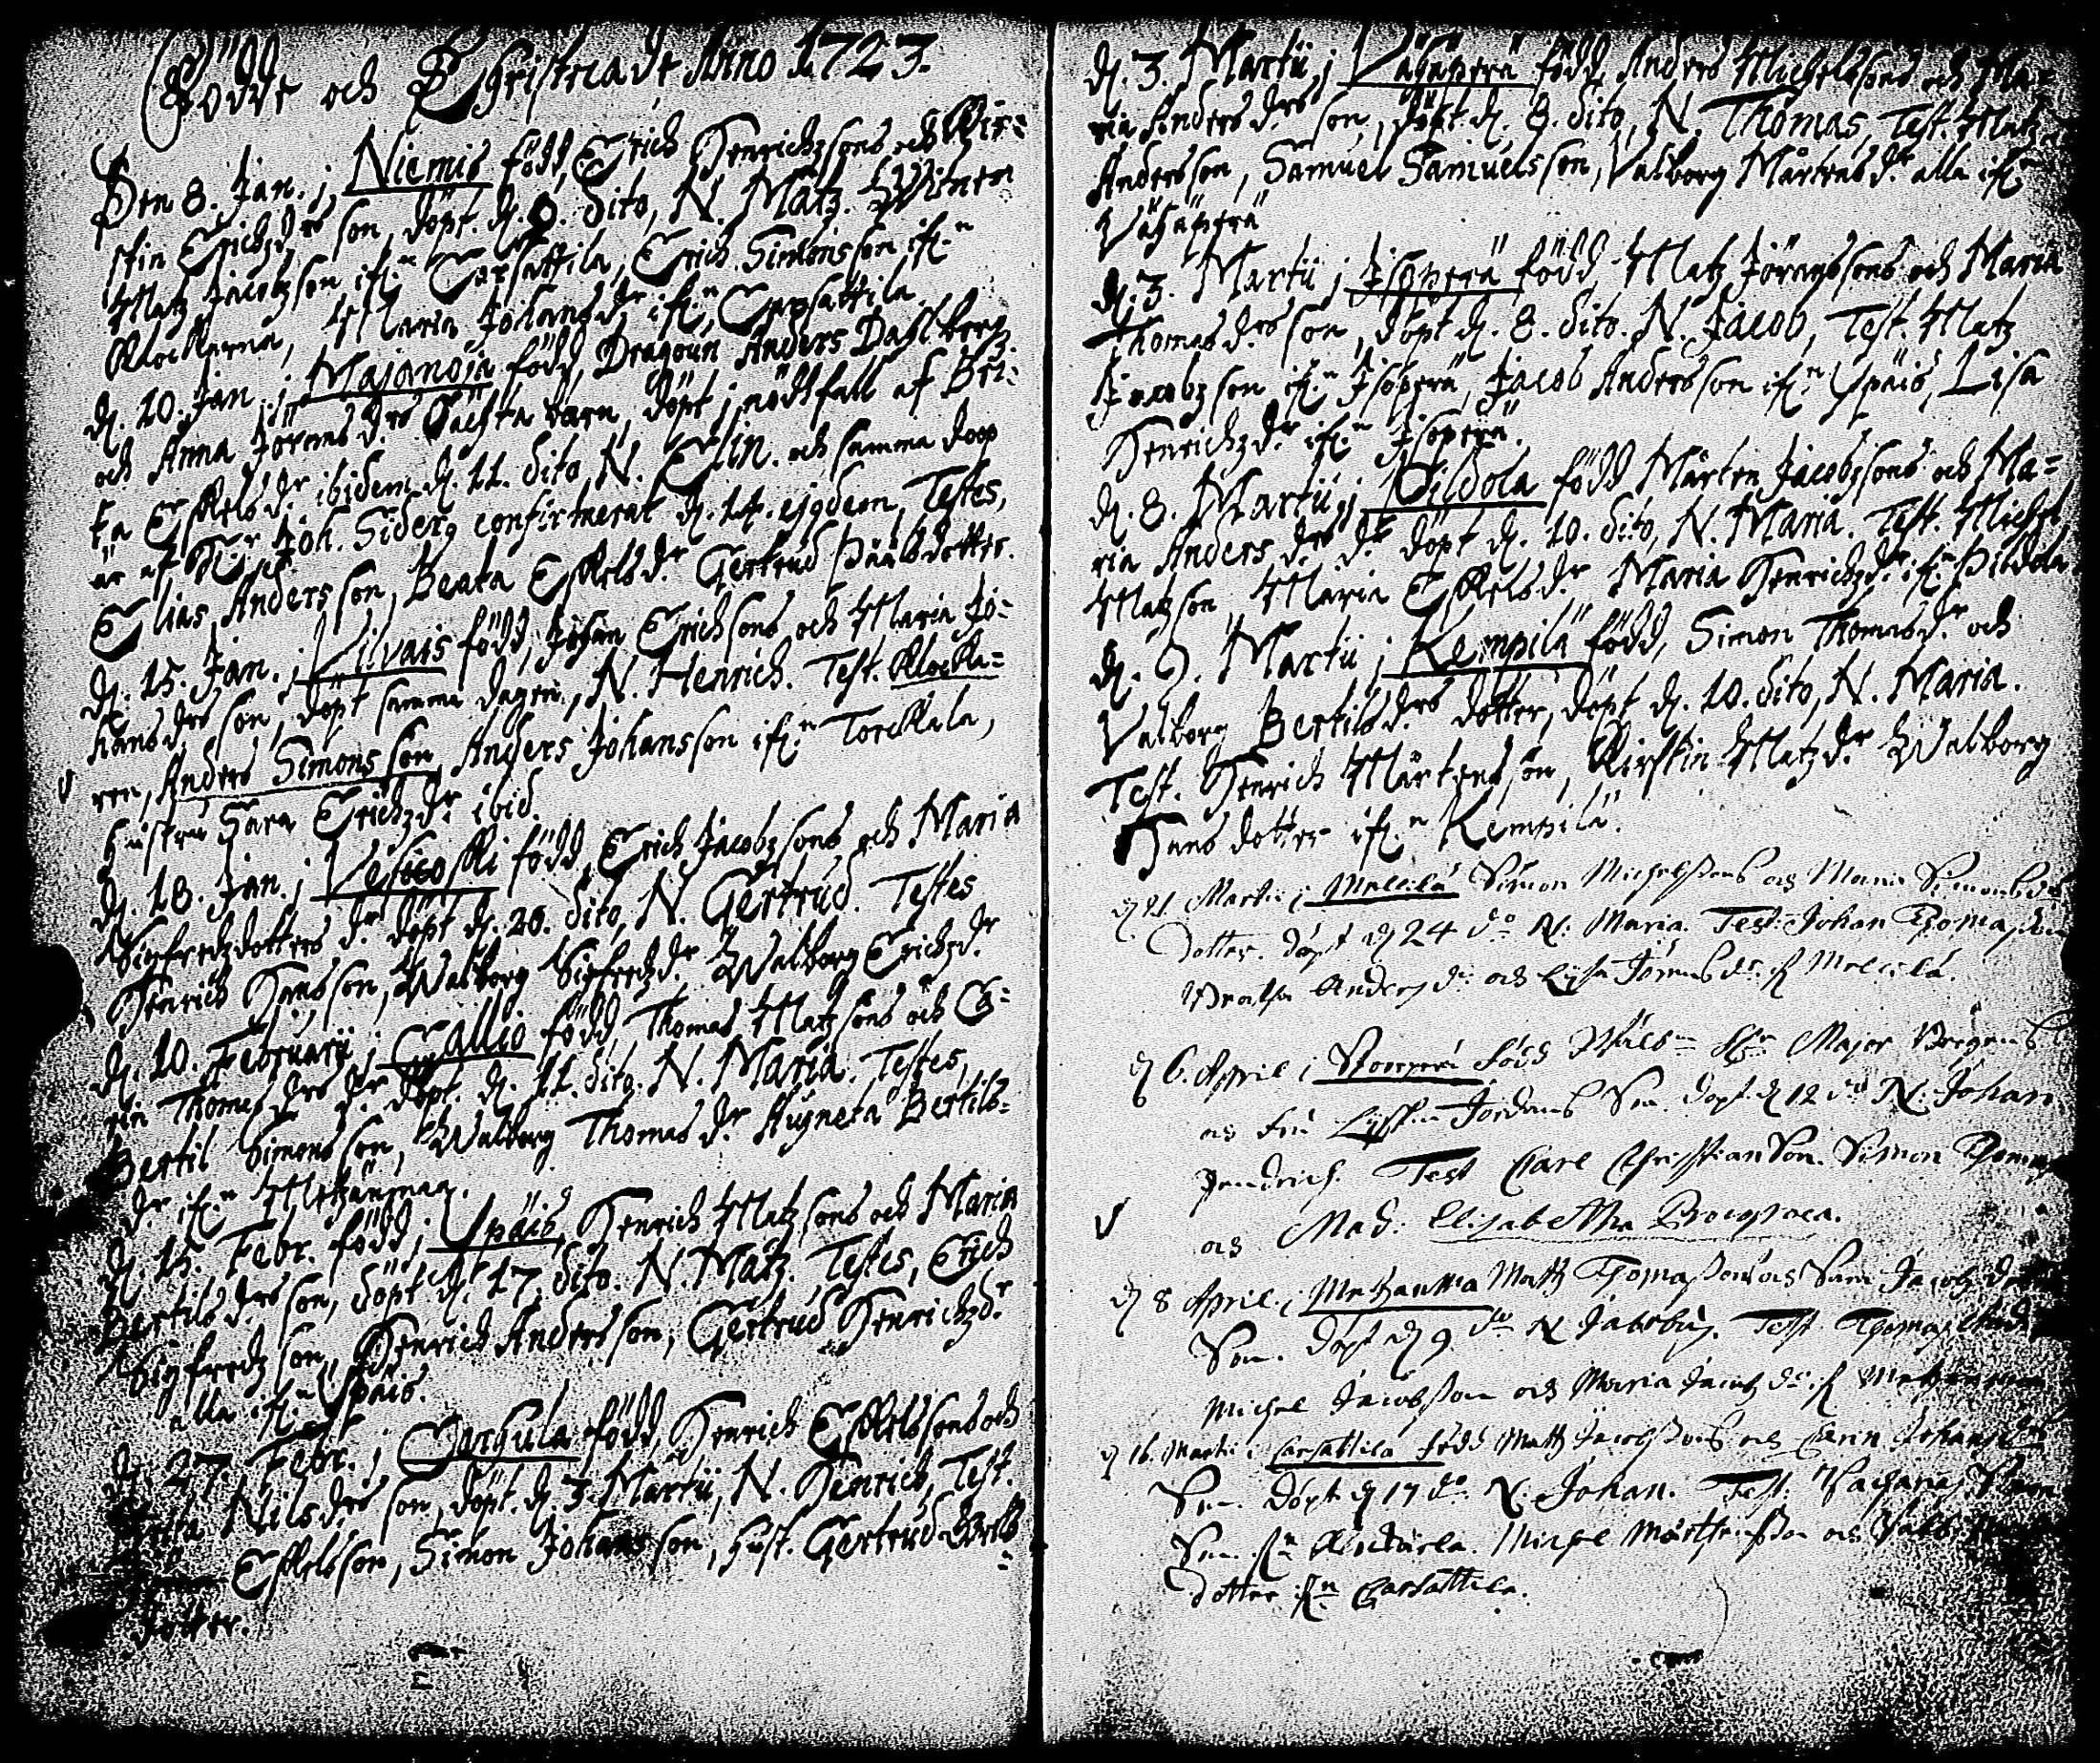 Födde och Christnade Anno 1723.
Den 8. Jan. j Niemis född, Erich Henrichzsons och Kir=
stin Erichzdrs son, döpt. d. 9. dito, N. Matz. Witnen
Matz Jacobzson ifrn Carsattila, Erich Simonsson ifrn
Klockarna, Maria Johansdr ifrn Carsattila.
d. 10. Jan. j Majanoja född, Dragoun Anders Dahlbergz
och Anna Jörensdrs oächta barn, döpt j nödhfall af Bri:
ta Eskelsdr ibidem d. 11. dito, N. Elin. och samma doop
är af Hr Joh. Siderg confirmerat d. 14. ejusdem, Testes,
Elias Andersson, Beata Eskelsdr Gertrud Påålsdotter.
d. 15. Jan. j Vilvais född, Johan Erichsons och Maria Jo=
hansdrs son, döpt samma dagen, N. Henrich. Test. Klocka=
ren, Anders Simonsson, Anders Johansson ifrn Torckala,
hustru Sara Erichzdr ibid.
d. 18. Jan. j Vesicoski född, Erich Jacobzsons och Maria
Sigfredzdotters dr döpt d. 20. dito, N. Gertrud. Testes
Henrich Hansson, Walborg Sigfredzdr Walborg Erichzdr
d. 10. Februarij j Gallio född, Thomas Matzsons och Ca=
rin Thomasdrs dr döpt. d. 11. dito. N. Maria. Testes,
Bertil Simonsson, Walborg Thomasdr Augneta Bertils=
dr ifrn Metzänmaa.
d. 15. Febr. född j Ypäis, Henrich Matzsons och Maria
Bertilsdrs son, döpt d. 17. dito. N. Matz. Testes, Erich
Sigfredzson, Henrich Andersson, Gertrud Henrichzdr
alla ifrn Ypäis.
d. 27. Febr. j Carhula född, Henrich Eskelssons och
Nilsdrs son, döpt. d. 3. Martii, N. Henrich, Test.
Eskelsson, Simon Johansson, hust. Gertrud
dotter.
d. 3. Martii j Vähäperä född, Anders Michelssons och Ma=
ria Andersdrs son, döpt. d. 8. dito, N. Thomas, Test. Matz
Andersson, Samuel Samuelsson, Valborg Mårtensdr alla ifrn
Vähäperä
d. 3. Martii j Isoperä född Matz Jörenssons och Maria
Thomasdrs son, döpt d. 8. dito. N. Jacob, Test. Matz
Jacobzson ifrn Isoperä, Jacob Andersson ifrn Ypäis, Lisa
Henrichzdr ifrn Isoperä.
d. 8. Martii j Pildola född Mårten Jacobzsons och Ma=
ria Andersdrs dr döpt d. 10. dito, N. Maria. Test. Michel
Matzson, Maria Eskelsdr Maria Henrichzdr ifrn Pildola.
d. 9. Martii j Kempilä född, Simon Thomasdr och
Valborg Bertilsdrs dotter, döpt d. 10. dito, N. Maria.
Test. Henrich Mårtensson, Kirstin Matzdr Walborg
Hans dotter ifrn Kempilä.
d 21 Martii j Mellilä Simon Michelssons och Maria Simonsd
dotter. döpt d 24 do N: Maria. Test: Johan Thomasson
Anders dr och Lisa Jörensdr ifr Mellilä.
d 6. April j född Major
och Fru Jordans Son. döpt d 12 do N: Johan
Hendrich. Test Carl Christianson. Simon Thomas
och Mad: Elisabetha
d 8 April j Metzanmaa Matz Thomassons och Jacobsd
Son. döpt d 9 do N Test Thomas
Michel Jacobsson och Maria Jacobsdr ifr
d 16. Martii i Carsattila född Matz Jacobssons och Carin Johansd
Son. döpt d 17 do. N: Johan. Test: Zacharias Simon
Son ifrn Michel Mårtensson och
dotter ifrn Carsattila.